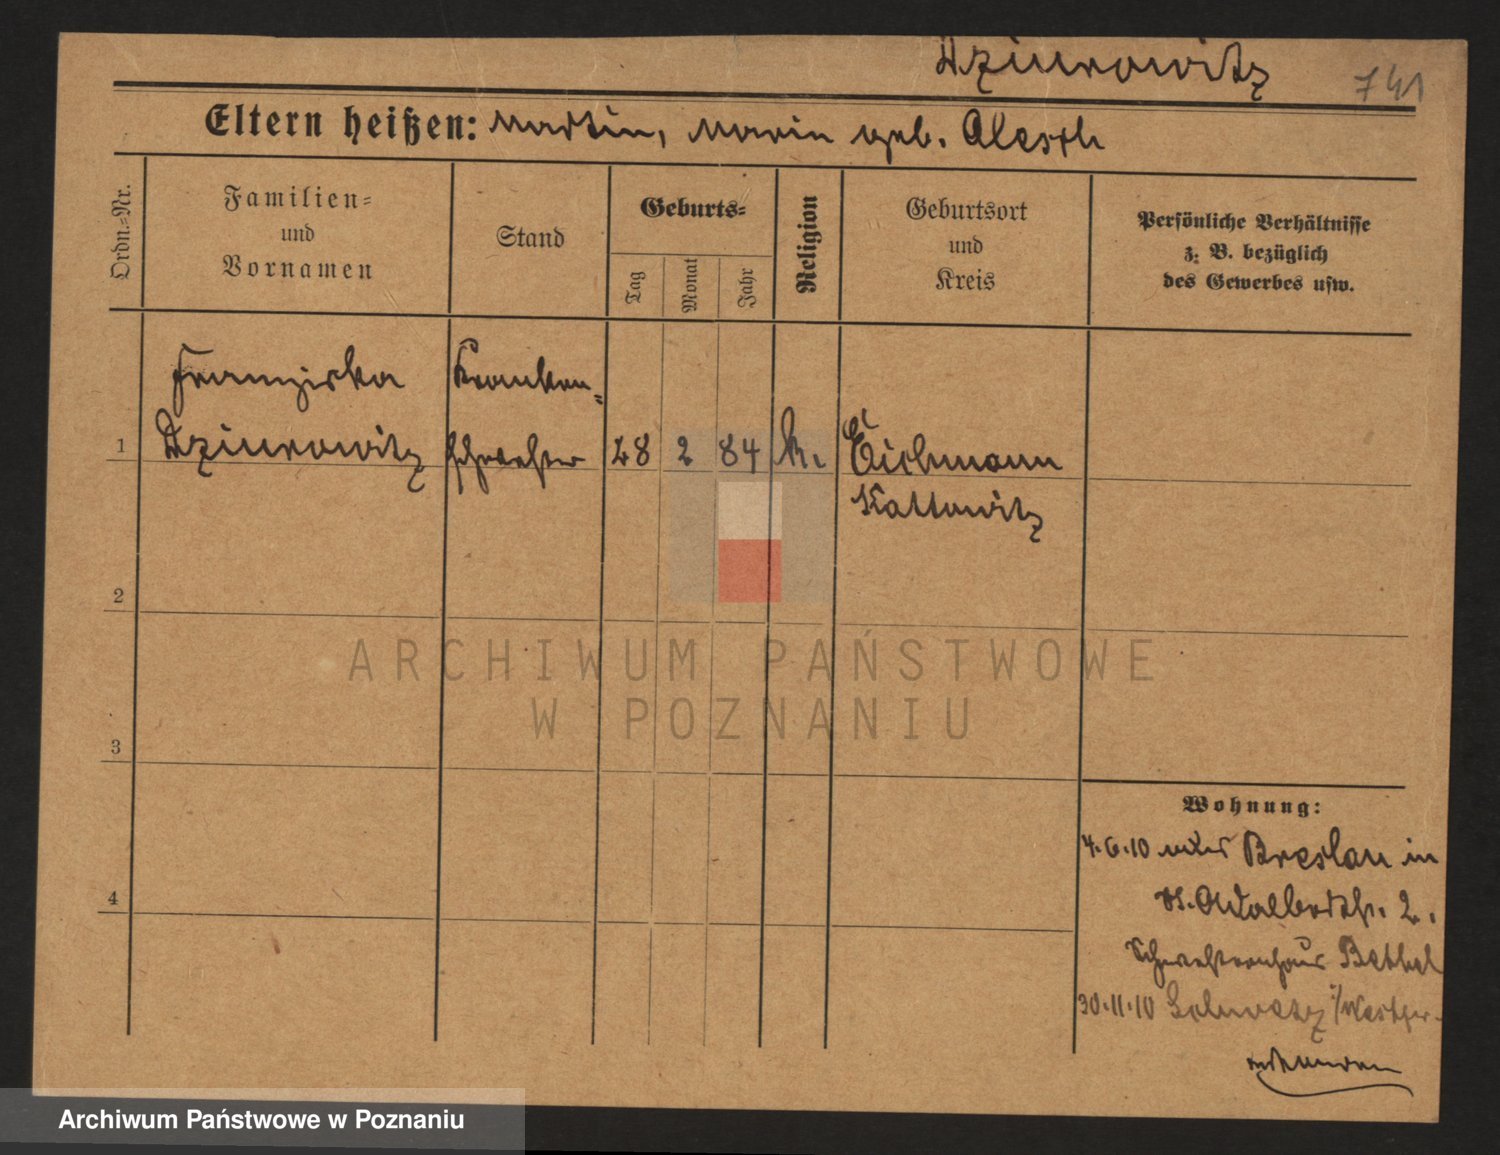 Dziurowitz
741
Eltern heißen: Martin, Marie geb. Alesch
Ordn.=Nr.
Familien=
und
Vornamen
Stand
Geburts=
Tag
Monat
Jahr
Religion
Geburtsort
und
Kreis
Persönliche Verhältnisse
z. B. bezüglich
des Gewerbes usw.
Franziska
Kranken=
1
Dziurowitz
schwester
28
2
84
k.
Eichmann
Kattowitz
2
ARCHIWUM PAŃSTWOWE
W POZNANIU
3
Wohnung:
4.6.10 Breslau in
4
St. Adalbertstr. 2.
Schwesternhaus Bethel
30.11.10 Schwetz
Archiwum Państwowe w Poznaniu